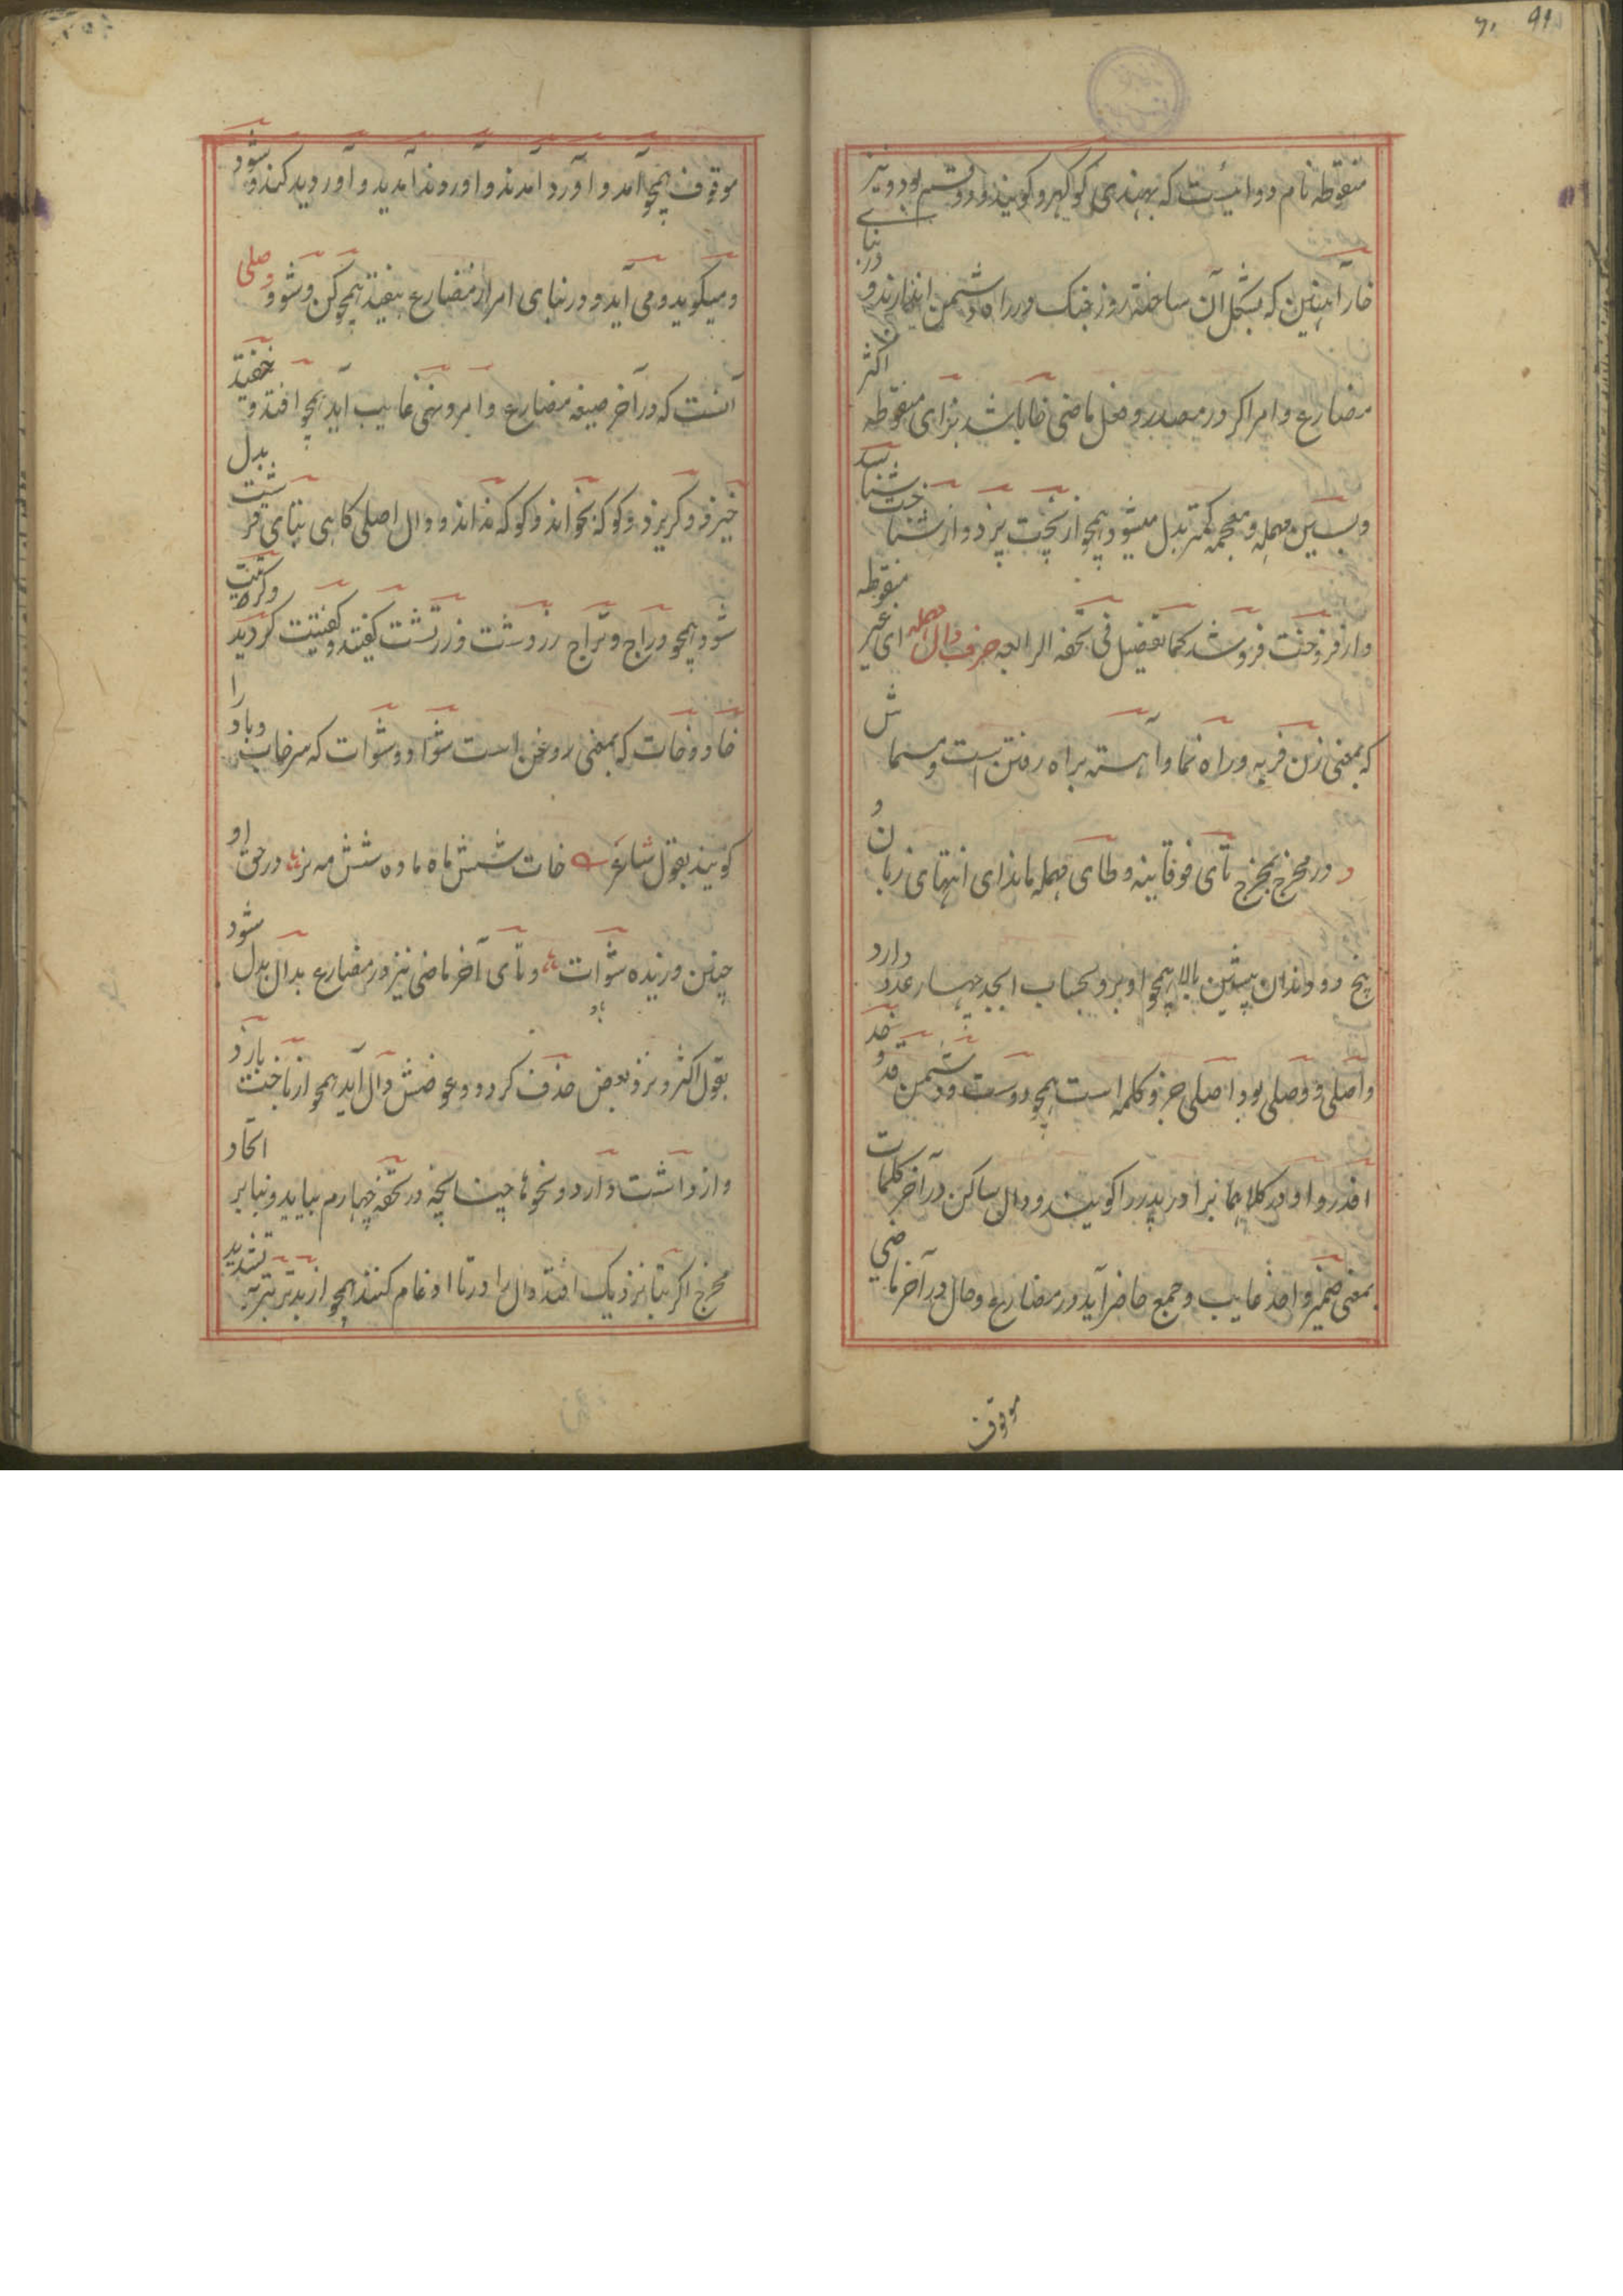 منقوطه نام دوائیست که بهندی کوکهرو کویند و دو قسم بود و نیز
خار آهنین که بشکل آن ساخته روز جنک در راه دشمن اندازند و در بنای
مضارع و امر اکر در مصدر و فعل ماضی خا باشد بزای منقوطه اکثر
و بسین مهمله و معجمه کمتر بدل میشود همچو از پخت پزد و از شناخت شناسد
و از فروخت فروشد کما تفصیل فی تحفه الرابعه حرف دال مهمله ای غیر منقوطه
که بمعنی زن فربه و راه نما و آهسته براه رفتن است و مسماش
د در مخرج بمخرج تای فوقانیه و طای مهمله ماند ای انتهای زبان و
بیخ دو دندان پیشین بالا همچو او بزو بحساب ابجد چهار عدد دارد
و اصلی و وصلی بود اصلی جزو کلمه است همچو دوست و دشمن و قد و خد
افدر و اودر کلاهما برادر پدر را کویند و دال ساکن در آخر کلمات
بمعنی ضمیر واحد غایب و جمع حاضر آید در مضارع و حال و در آخر ماضی
موقوف
موقوف همچو آمد و آورد آمدند و آوردند آمدید و آوردید کند و شود
و میکوید و می آید و در بنای امر از مضارع بیفتد همچو کن و شو و وصلی
آنست که در آخر صیغه مضارع و امر و نهی غایب آید همچو افتد و خفتید
خیزد و کریزد و کو که بخواند و کو که نداند و دال اصلی کاهی بتای قرشت بدل
شود همچو دراج و تراج زردشت و زرتشت کفتید و کفتیت کردید و کردیت
خاد و خات که بمعنی زغن است شواد و شوات که سرخاب را
کویند بقول شاعر خات شش ماه ماده شش مه نر در حق او
چنین ورزیده شوات و تای آخر ماضی نیز در مضارع بدال بدل شود
بقول اکثر و نزد بعض حذف کردد و عوضش دال آید همچو از باخت بازد
و از داشت دارد و نحوها چنانچه در تحفه چهارم بیاید و بنابر اتحاد
مخرج اکر بتا نزدیک افتد دال را در تا ادغام کنند همچو از بدتر بتر بتشدید